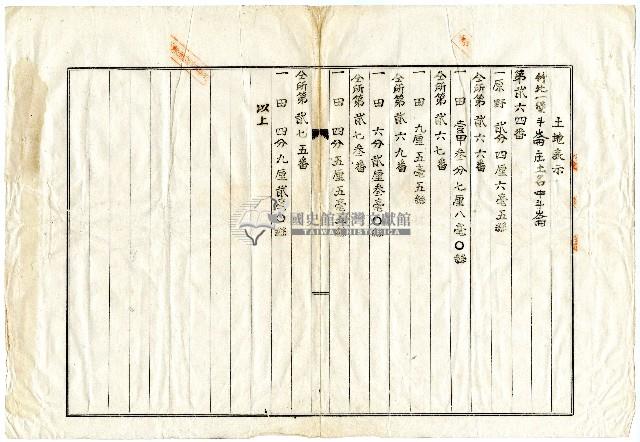 土地表示
斜北一堡斗崙庄土名中斗崙
第貳六四番
一原野 貳分四厘六毫五絲
仝所第貳六六番
一田 壹甲叁分七厘八毫〇絲
仝所第貳六七番
一田 九厘五毫五絲
仝所第貳六九番
一田 六分貳厘叁毫〇絲
仝所第貳七叁番
一田 四分五厘五毫絲
仝所第貳七五番
一田 四分九厘貳毫〇絲
以上
國史館臺灣文獻館
TAIWAN HISTORICA